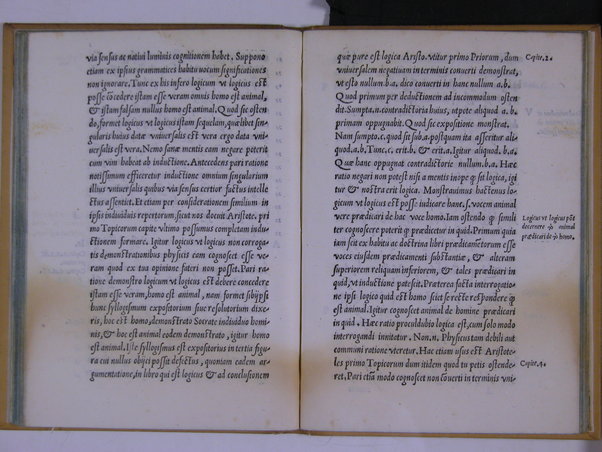 via sensus ac nativi luminis cognitionem habet. Suppono
etiam ex ipsius grammatices habitu vocum significationes
non ignorare. Tunc ex his infero logicum ut logicus est
posse concedere istam esse veram omnis homo est animal,
& istam falsam nullus homo est animal. Quod sic osten
do, formet logicus ut logicus istam sequelam, quælibet sin
gularis huius datæ universalis est vera ergo data uni
versalis est vera. Nemo sanæ mentis eam negare poterit
cum vim habeat ab inductione. Antecedens pari ratione
notissimum efficeretur inductione omnium singularium
illius universalis quibus via sensus certior factus intelle
ctus assensit. Et etiam per considerationem similium in
ipsis individuis repertorum sicut nos docuit Aristote. pri
mo Topicorum capite ultimo possumus completam indu
ctionem formare. Igitur logicus ut logicus non corroga
tis demonstrationibus physicis eam cognoscet esse ve-
ram quod ex tua opinione fateri non posset. Pari ra-
tione demonstro logicum ut logicus est debere concedere
istam esse veram, homo est animal, nam formet sibipsi
hunc syllogismum expositorium sive resolutorium dixe
ris, hoc est homo, demonstrato Socrate individuo homi
nis, & hoc est animal eodem demonstrato, igitur homo
est animal. Iste syllogismus est expositorius in tertia figu
ra cui nullus obijci possit defectus, quoniam eadem ar-
gumentatione, in libro qui est logicus & ad conclusionem
quæ pure est logica Aristo. utitur primo Priorum, dum
universalem negativam in terminis converti demonstrat,
ut esto nullum .b.a. dico converti in hanc nullum .a.b.
Quod primum per deductionem ad incommodum osten
dit. Sumpta .n. contradictoria huius, utpote aliquod a. b.
primam oppugnabit. Quod sic expositione monstrat.
Nam sumpto .c. quod sit sub .a. postquam ita asseritur ali
quod .a.b. Tunc .c. erit .b. & erit .a. Igitur aliquod .b.a.
Quæ hanc oppugnat contradictorie nullum .b.a. Hæc
ratio negari non potest nisi a mentis inope & sic logica, igi
tur & nostra erit logica. Monstravimus hactenus lo-
gicum ut logicus est posse iudicare hanc .s. vocem animal
vere prædicari de hac voce homo. Iam ostendo & simili
ter cognoscere poterit & prædicetur in quid. Primum quia
iam scit ex habitu ac doctrina libri prædicamentorum esse
voces eiusdem prædicamenti substantiæ, & alteram
superiorem reliquam inferiorem, & tales prædicari in
quid, ut inductione patefcit. Præterea facta interrogatio
ne ipsi logico quid est homo sciet se recte respondere &
est animal. Igitur cognoscet animal de homine prædicari
in quid. Hæc ratio proculdubio logica est, cum solo modo
interrogandi innitatur. Non .n. Physicus tam debili aut
communi ratione uteretur. Hac etiam usus est Aristote-
les primo Topicorum dum itidem quod tu petis ostende-
ret. Pari etiam modo cognoscet non converti in terminis uni-
Capite. 2.
Logicus ut logicus potest
decernere & animal
prædicari de homo.
Capite. 4.